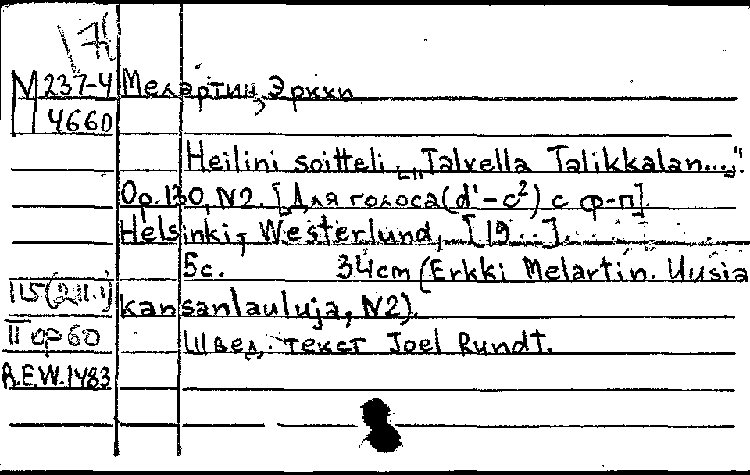 17
М 237-4 Мелартин, Эркки
4660
Heilini soitteli „Talvella Talikkalan...".
Op. 130, N2. [Для голоса (d'-c²) с ф-п]
Helsinki, Westerlund, [19...].
5с. 34cm (Erkki Melartin. Uusia
kansanlauluja, N2).
II ор 60 Швед. текст Joel Rundt.
R.E.W.1483